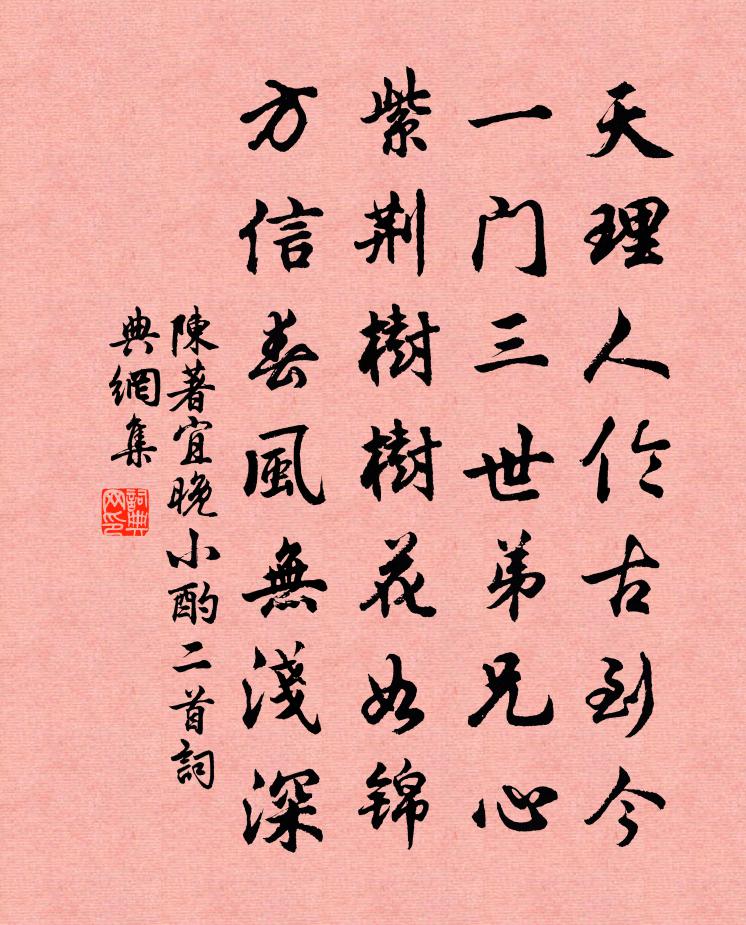 天理人伦古到今
一门三世弟兄心
紫荆樹樹花如锦
方信春風無淺深
陳著宜晚小酌二首詞
典網集
詞典
网印